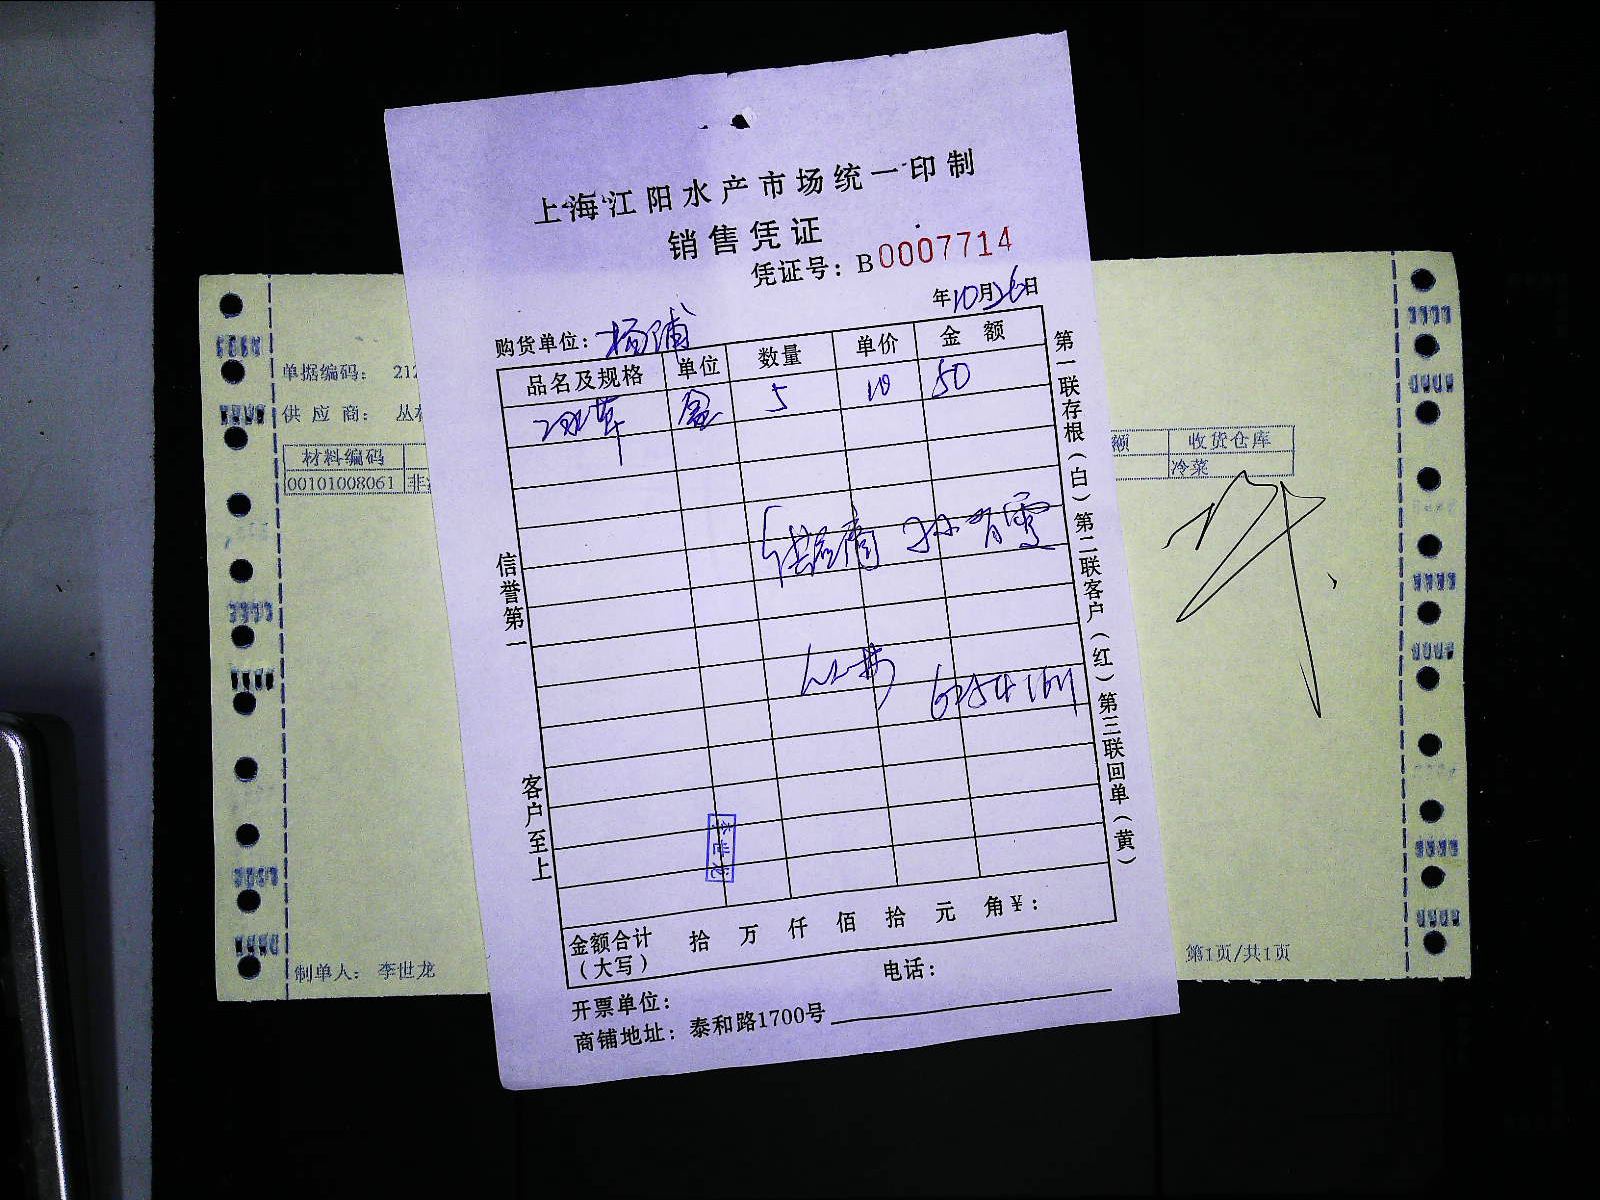 上海江阳水产市场统一印制
销售凭证
凭证号：B0007714
年10月26日
购货单位：杨浦
品名及规格 单位 数量 单价 金额
盒 5 10 50
供应商 孙肖雯
信誉第一
客户至上
第一联存根（白）第二联客户（红）第三联回单（黄）
金额合计（大写） 拾 万 仟 佰 拾 元 角￥：
开票单位： 电话：
商铺地址：泰和路1700号
单据编码： 212
供应商： 丛
材料编码
00101008061 非
额 收货仓库
冷菜
制单人： 李世龙
第1页/共1页